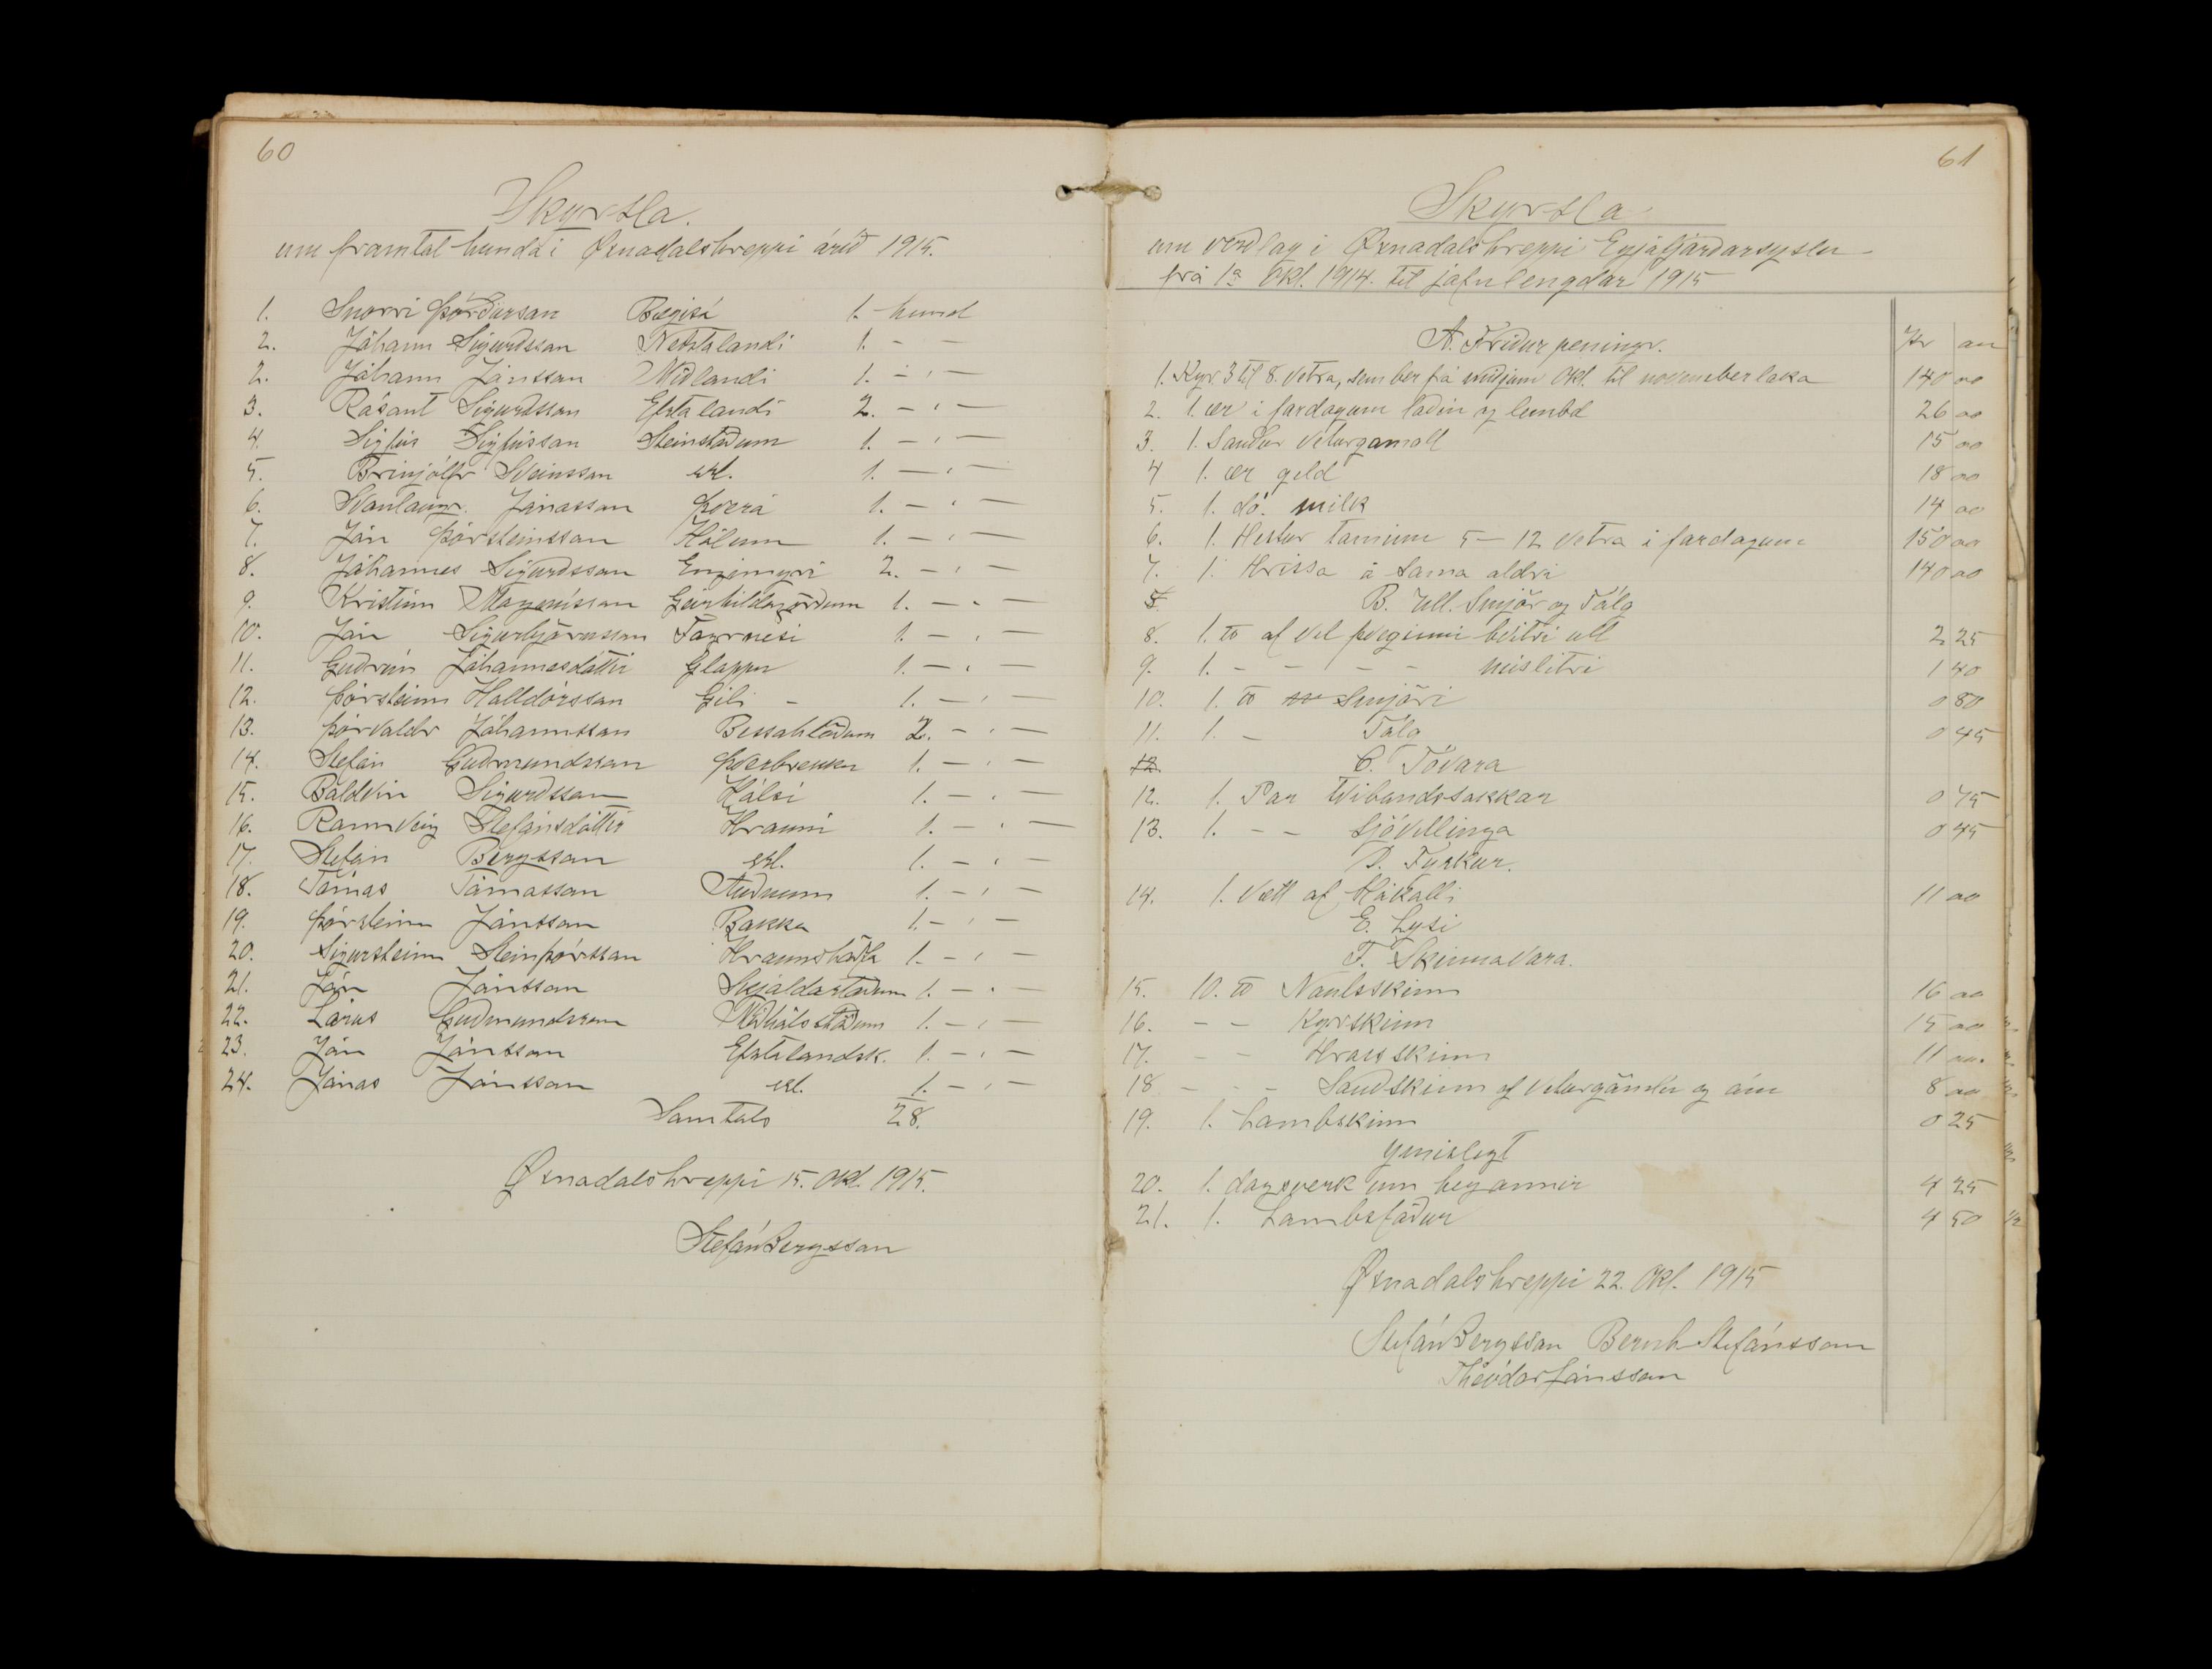 60
Skyrsla.
um framtal hunda í Øxnadalshreppi árið 1915.
1. Snorri Þórðarson Bægisá 1. hund
2. Jóhann Sigurðsson Neðstalandi 1. - -
2. Jóhann Jónsson Miðlandi 1. - " -
3. Rósant Sigurðsson Efstalandi 2. - " -
4. Sigfús Sigfússon Steinstöðum 1. - " -
5. Brinjólfr Sveinsson st. 1. - " -
6. Svanlaugr. Jónasson Þverá 1. - " -
7. Jón Þórsteinsson Hólum 1. - " -
8. Jóhannes Sigurðsson Engimyri 2. - " -
9. Kristinn Magnússon Geirhildargörðum 1. - " -
10. Jón Sigurbjörnsson Fagranesi 1. - " -
11. Guðrún Jóhannesdóttir Gloppu 1. - " -
12. Þórsteinn Halldórsson Gili - 1. - "
13. Þórvaldr Jóhannsson Bessahlöðum 2. - " -
14. Stefán Guðmundsson Þverbrekku 1. - " -
15. Baldvin Sigurðsson Hálsi 1. - " -
16. Rannveig Stefánsdóttir Hrauni 1. - " -
17. Stefán Bergsson st. 1. - " -
18. Tómas Tómasson Auðnum 1. - " -
19. Þórsteinn Jónsson Bakka 1. - " -
20. Sigursteinn Steinþórsson Hraunshöfða 1. - " -
21. Jón Jónsson Skjaldastöðum 1. - " -
22. Lárus Guðmundsson Miðhálsstöðum 1. - " -
23. Jón Jónsson Efstalandsk. 1. - " -
24. Jónas Jónsson st. 1. - " -
Samtals 28.
Øxnadalshreppi 15. Okt. 1915.
Stefán Bergsson
61
Skyrsla
um verðlag í Øxnadalshreppi Eyjafjarðarsyslu
frá 1a Okt. 1914. til jafnlengdar 1915
Kr au
A. Friður peningr.
1. Kyr. 3 til 8. vetra, sem ber frá miðjum Okt. til novemberloka 140 00
2. 1. ær í fardogum loðin og lembd 26 00
3. 1. Sauður veturgamall 15 00
4 1. ær geld 18 00
5. 1. dó. milk 14 00
6. 1. Hestur taminn 5-12 vetra í fardogum 150 00
7. 1. Hrissa á sama aldri 140 00
8. B. Ull. Smjör og Tólg
8. 1. ℔ af vel þveginni hvítri ull 2 25
9. 1. - - - - mislitri 1 40
10. 1. ℔ Smjöri 0 80
11. 1. - Tólg 0 45
12. C. Tóvara
12. 1. Par tvíbandssokkar 0 75
13. 1. - - Sjóvettinga 0 45
D. Fiskur.
14. 1. Vætt af Hákalli 11 00
E. Lysi
F. Skinnavara.
15. 10. ℔ Nautsskinn 16 00
16. - - Kyrskinn 15 00
17. - - Hrossskinn 11 00.
18 - - - Sauðskinn af veturgömlu og ám 8 00
19. 1. Lambskinn 0 25
Ymislegt
20. 1. dagsverk um heyannir 4 25
21. 1. Lambsfóður 4 50
Øxnadalshreppi 22. Okt. 1915
Stefán Bergsson Bernh Stefánsson
Theódór Jónsson